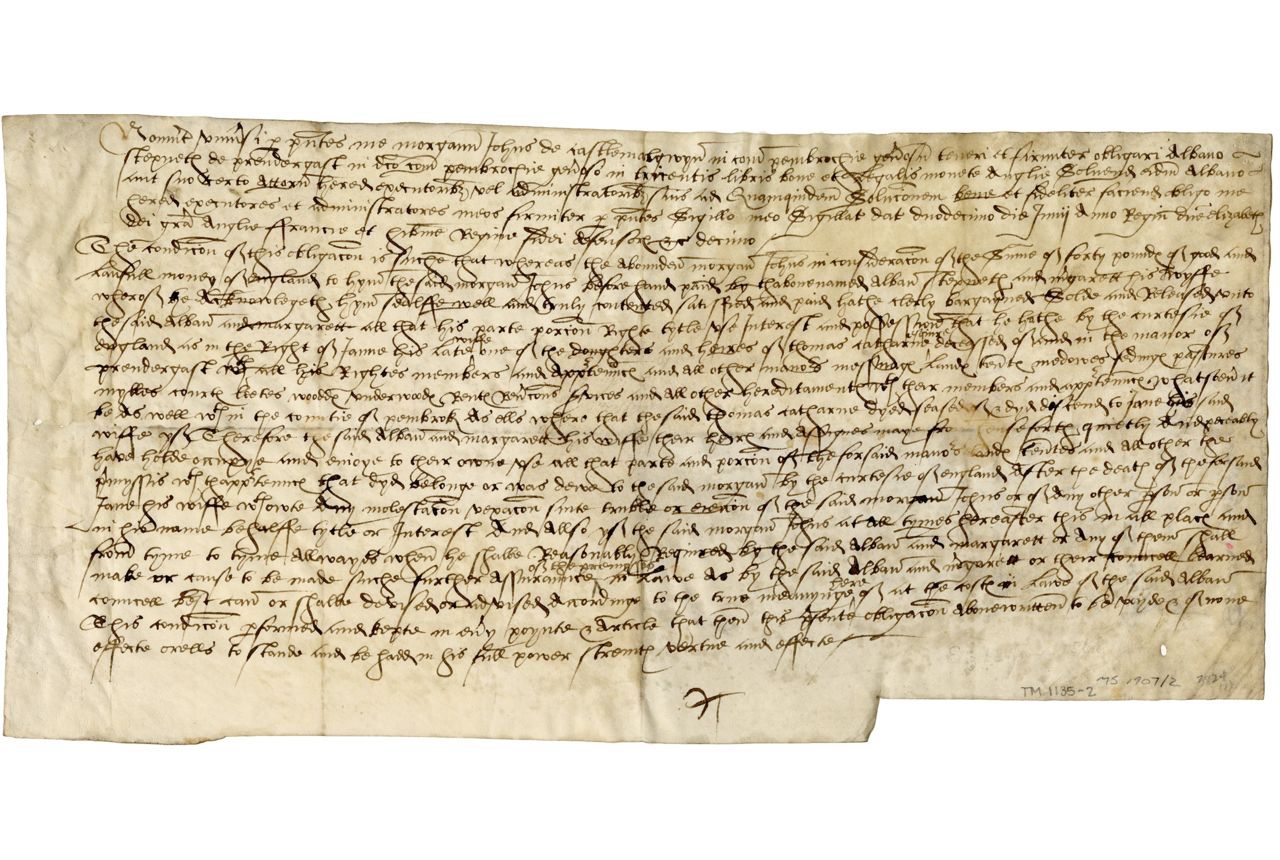 Noverint universi p pntes me morgann Johns de Castlemalgwyn in com pembrochie generosu teneri et firmiter obligari Albano
Stepneth de prendergast in dco com pembrochie generoso in tricentis libris bone et legalis monete Anglie Solvend eidm Albano
aut suo certo Attorn hered executorib vel administratorib suis ad Quamquidem Solucionem bene et fideliter faciend obligo me
hered executores et administratores meos firmiter p pntes Sigillo meo Sigillat dat duodecimo die Junij Anno Regni dne Elizabeth
dei gra Anglie ffrancie et hibnie Regine fidei defensoris &c decimo
The condicon of this obligacon is suche that whereas the abounden morgan Johns in consideracon of the Sume of forty poundes of good and
Lawfull money of england to hym the said morgan Johns before hand paid by thabovenamed Alban Stepneth and margarett his wyffe
wherof he Acknowlegeth hym sealffe well and truly contented satisfied and paid hathe clerly bargayned Solde and Released unto
the said Alban and margarett all that his parte porcon Righte tytle use Interest and possession that he hathe by the curtesie of
england as in the Right of Janne his late wiffe one of the doughters and heires of thomas catharne esquire decesed of and in the manor of
prendergast wth all his Rightes members and apptennces and all other manors messuages landes tents medowes fedinges pastures
mylles courtes letes woodes underwoodes Rentes Rencons srvices and all other hereditaments wth their members and apptennces whatsoeu it
be As well wthin the countie of pembrok As ells where that the said thomas catharne dyed seased of & dyd discend to Jane his said
wiffe yf Therefore the said Alban and margarett his wiffe their heires and Assignes maye from hensforth quietly And peceably
have holde occupye and enioye to their owne use all that parte and porcon of the forsaid manors landes tentes and all other the
pmysses wth thapptennces that dyd belonge or was dewe to the said morgan by the curtesie of england After the death of the forsaid
Jane his wiffe wthowte Any molestacon vexacon sute truble or evicion of the said morgan Johns or of Any other pson or psons
in his name behalffe tytle or Interest And Allso yf the said morgan Johns at all tymes hereafter this in all places and
from tyme to tyme Allwayes when he shalbe Reasonably Requred by the said Alban and margarett or Any of them shall
make or cause to be made suche further Assuraunce of the premisses in Lawe As by the said Alban and margarett or their councell Learned
councell best can or shalbe devised or advised Accordinge to the true meanynge here of at the costes in Lawe of the said Alban
This condicon pformed and kepte in evy poynte & Article that then this psente obligacon Abovewritten to be voyde & of none
effecte orells to stande and be hadd in his full power strenth vertue and effecte
TM 1135-2 MS 1907/2